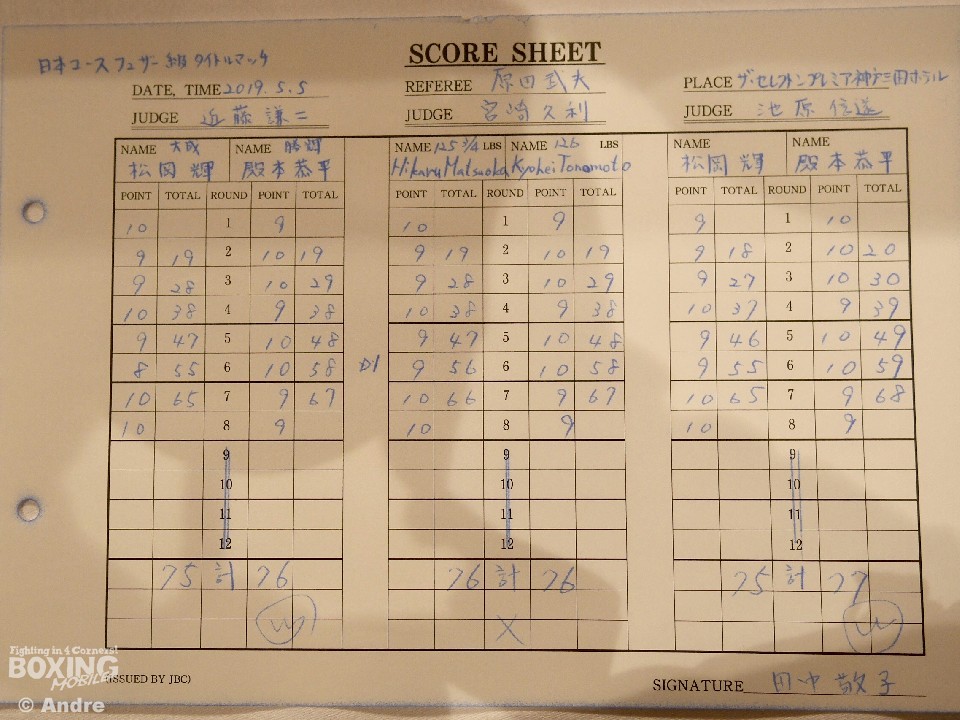 SCORE SHEET
日本ユースフェザー級タイトルマッチ
DATE, TIME 2019.5.5
REFEREE 原田武夫
PLACE ザ・セレクトンプレミア神戸三田ホテル
JUDGE 近藤謙二
JUDGE 宮崎久利
JUDGE 池原信遂
NAME 大成 NAME 勝輝 NAME 125 3/4 LBS NAME 126 LBS NAME NAME
松岡輝 殿本恭平 Hikaru Matsuoka Kyohei Tonomoto 松岡輝 殿本恭平
POINT TOTAL ROUND POINT TOTAL POINT TOTAL ROUND POINT TOTAL POINT TOTAL ROUND POINT TOTAL
10 1 9 10 1 9 9 1 10
9 19 2 10 19 9 19 2 10 19 9 18 2 10 20
9 28 3 10 29 9 28 3 10 29 9 27 3 10 30
10 38 4 9 38 10 38 4 9 38 10 37 4 9 39
9 47 5 10 48 9 47 5 10 48 9 46 5 10 49
8 55 6 10 58 D1 9 56 6 10 58 9 55 6 10 59
10 65 7 9 67 10 66 7 9 67 10 65 7 9 68
10 8 9 10 8 9 10 8 9
9 9 9
10 10 10
11 11 11
12 12 12
75 計 76 76 計 76 75 計 77
W X W
(ISSUED BY JBC)
SIGNATURE 田中敬子
Fighting in 4 Corners!
BOXING
MOBILE
© Andre